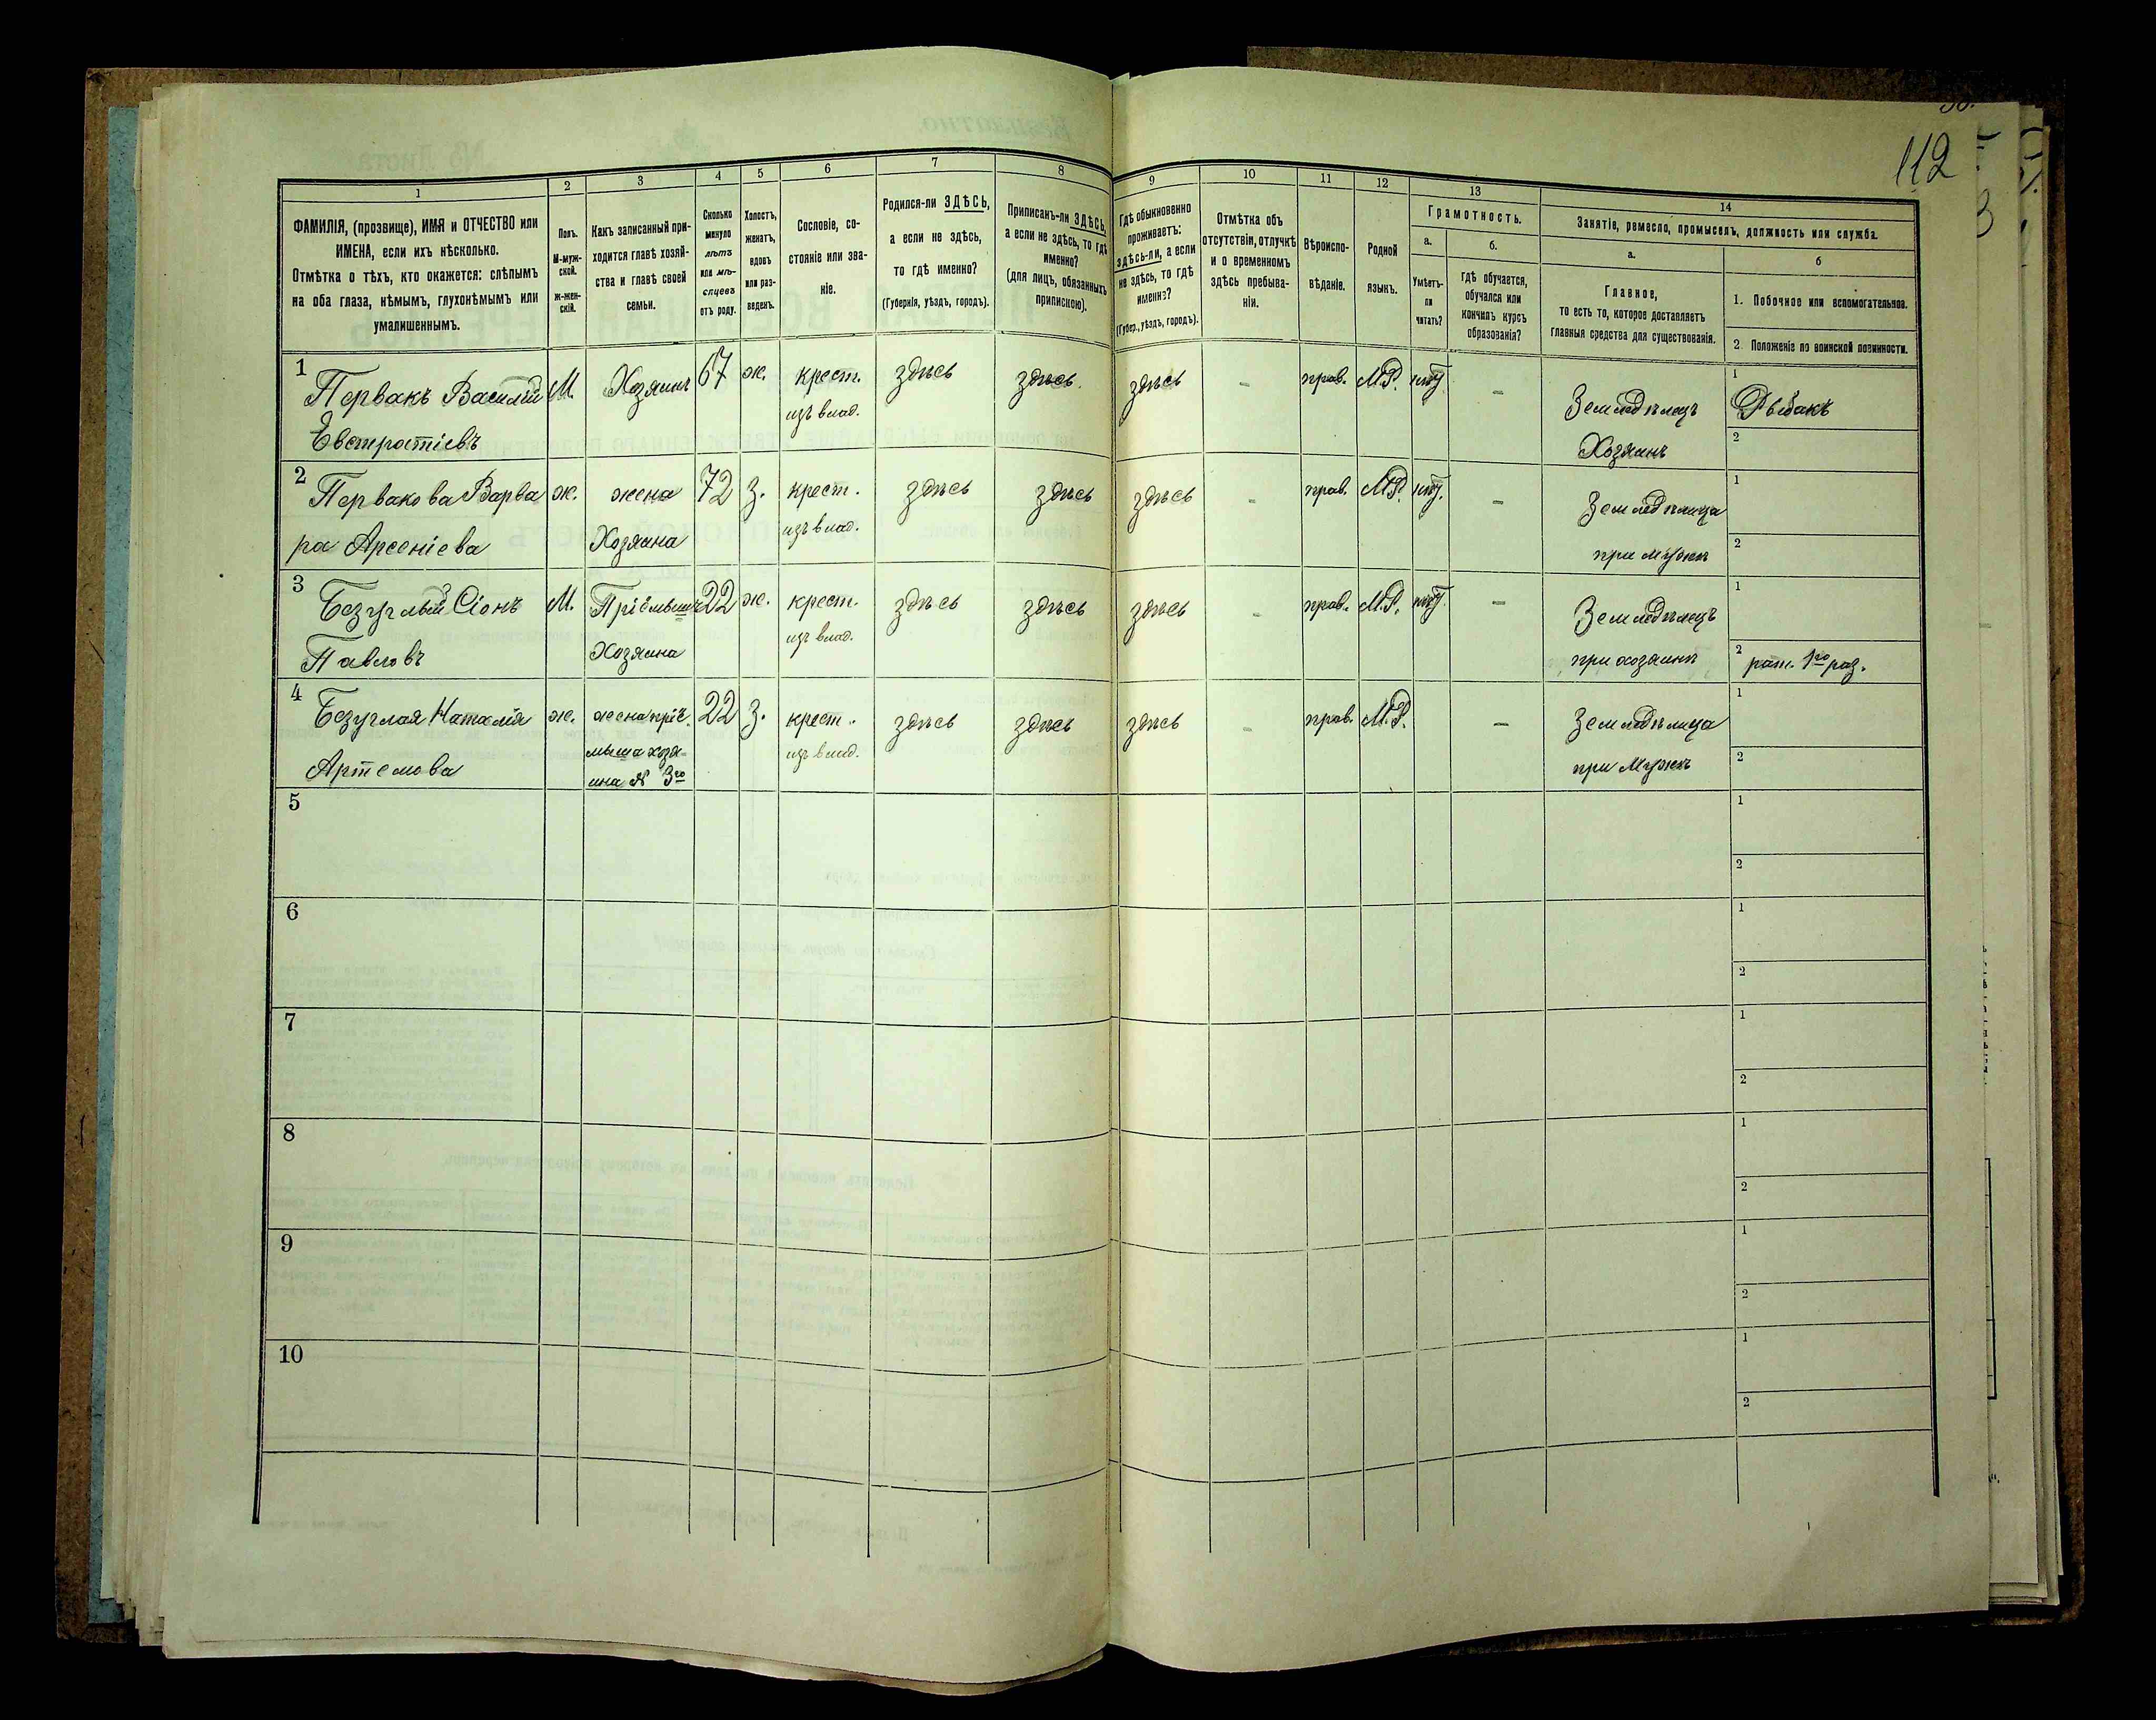 112
1 2 3 4 5 6 7 8 9 10 11 12 13 14
ФАМИЛІЯ, (прозвище), ИМЯ и ОТЧЕСТВО или
ИМЕНА, если ихъ нѣсколько.
Отмѣтка о тѣхъ, кто окажется: слѣпымъ
на оба глаза, нѣмымъ, глухонѣмымъ или
умалишеннымъ.
Полъ.
М-муж-
ской.
ж-жен-
скій.
Какъ записанный при-
ходится главѣ хозяй-
ства и главѣ своей
семьи.
Сколько
минуло
лѣтъ
или мѣ-
сяцевъ
отъ роду.
Холостъ,
женатъ,
вдовъ
или раз-
веденъ.
Сословіе, со-
стояніе или зва-
ніе.
Родился-ли ЗДѢСЬ,
а если не здѣсь,
то гдѣ именно?
(Губернія, уѣздъ, городъ).
Приписанъ-ли ЗДѢСЬ,
а если не здѣсь, то гдѣ
именно?
(для лицъ, обязанныхъ
припискою).
Гдѣ обыкновенно
проживаетъ:
здѣсь-ли, а если
не здѣсь, то гдѣ
именно?
(Губер., уѣздъ, городъ).
Отмѣтка объ
отсутствіи, отлучкѣ
и о временномъ
здѣсь пребыва-
ніи.
Вѣроиспо-
вѣданіе.
Родной
языкъ.
Грамотность.
а.
Умѣетъ-
ли
читать?
б.
Гдѣ обучается,
обучался или
кончилъ курсъ
образованія?
Занятіе, ремесло, промыселъ, должность или служба.
а.
Главное,
то есть то, которое доставляетъ
главныя средства для существованія.
б
1. Побочное или вспомогательное.
2. Положеніе по воинской повинности.
1
Первакъ Василій М. Хозяинъ 67 ж. крест. здѣсь здѣсь здѣсь - прав. М.Р. нѣт - Земледѣлецъ 1 Рыбакъ
Евстратіевъ изъ влад. Хозяинъ 2
2
Первакова Варва ж. жена 72 з. крест. здѣсь здѣсь здѣсь - прав. М.Р. нѣт. - Земледѣлица 1
ра Арсеніева Хозяина изъ влад. при мужѣ 2
3
Безуглый Сіонъ М. Пріёмышъ 22 ж. крест. здѣсь здѣсь здѣсь - прав. М.Р. нѣт. - Земледѣлецъ 1
Павловъ Хозяина изъ влад. при хозяинѣ 2 рат. 1го раз.
4
Безуглая Наталія ж. жена пріё- 22 з. крест. здѣсь здѣсь здѣсь - прав. М.Р. - Земледѣлица 1
Артемова мыша хозя- изъ влад. при Мужѣ 2
ина № 3го
5 1
2
6 1
2
7 1
2
8 1
2
9 1
2
10 1
2